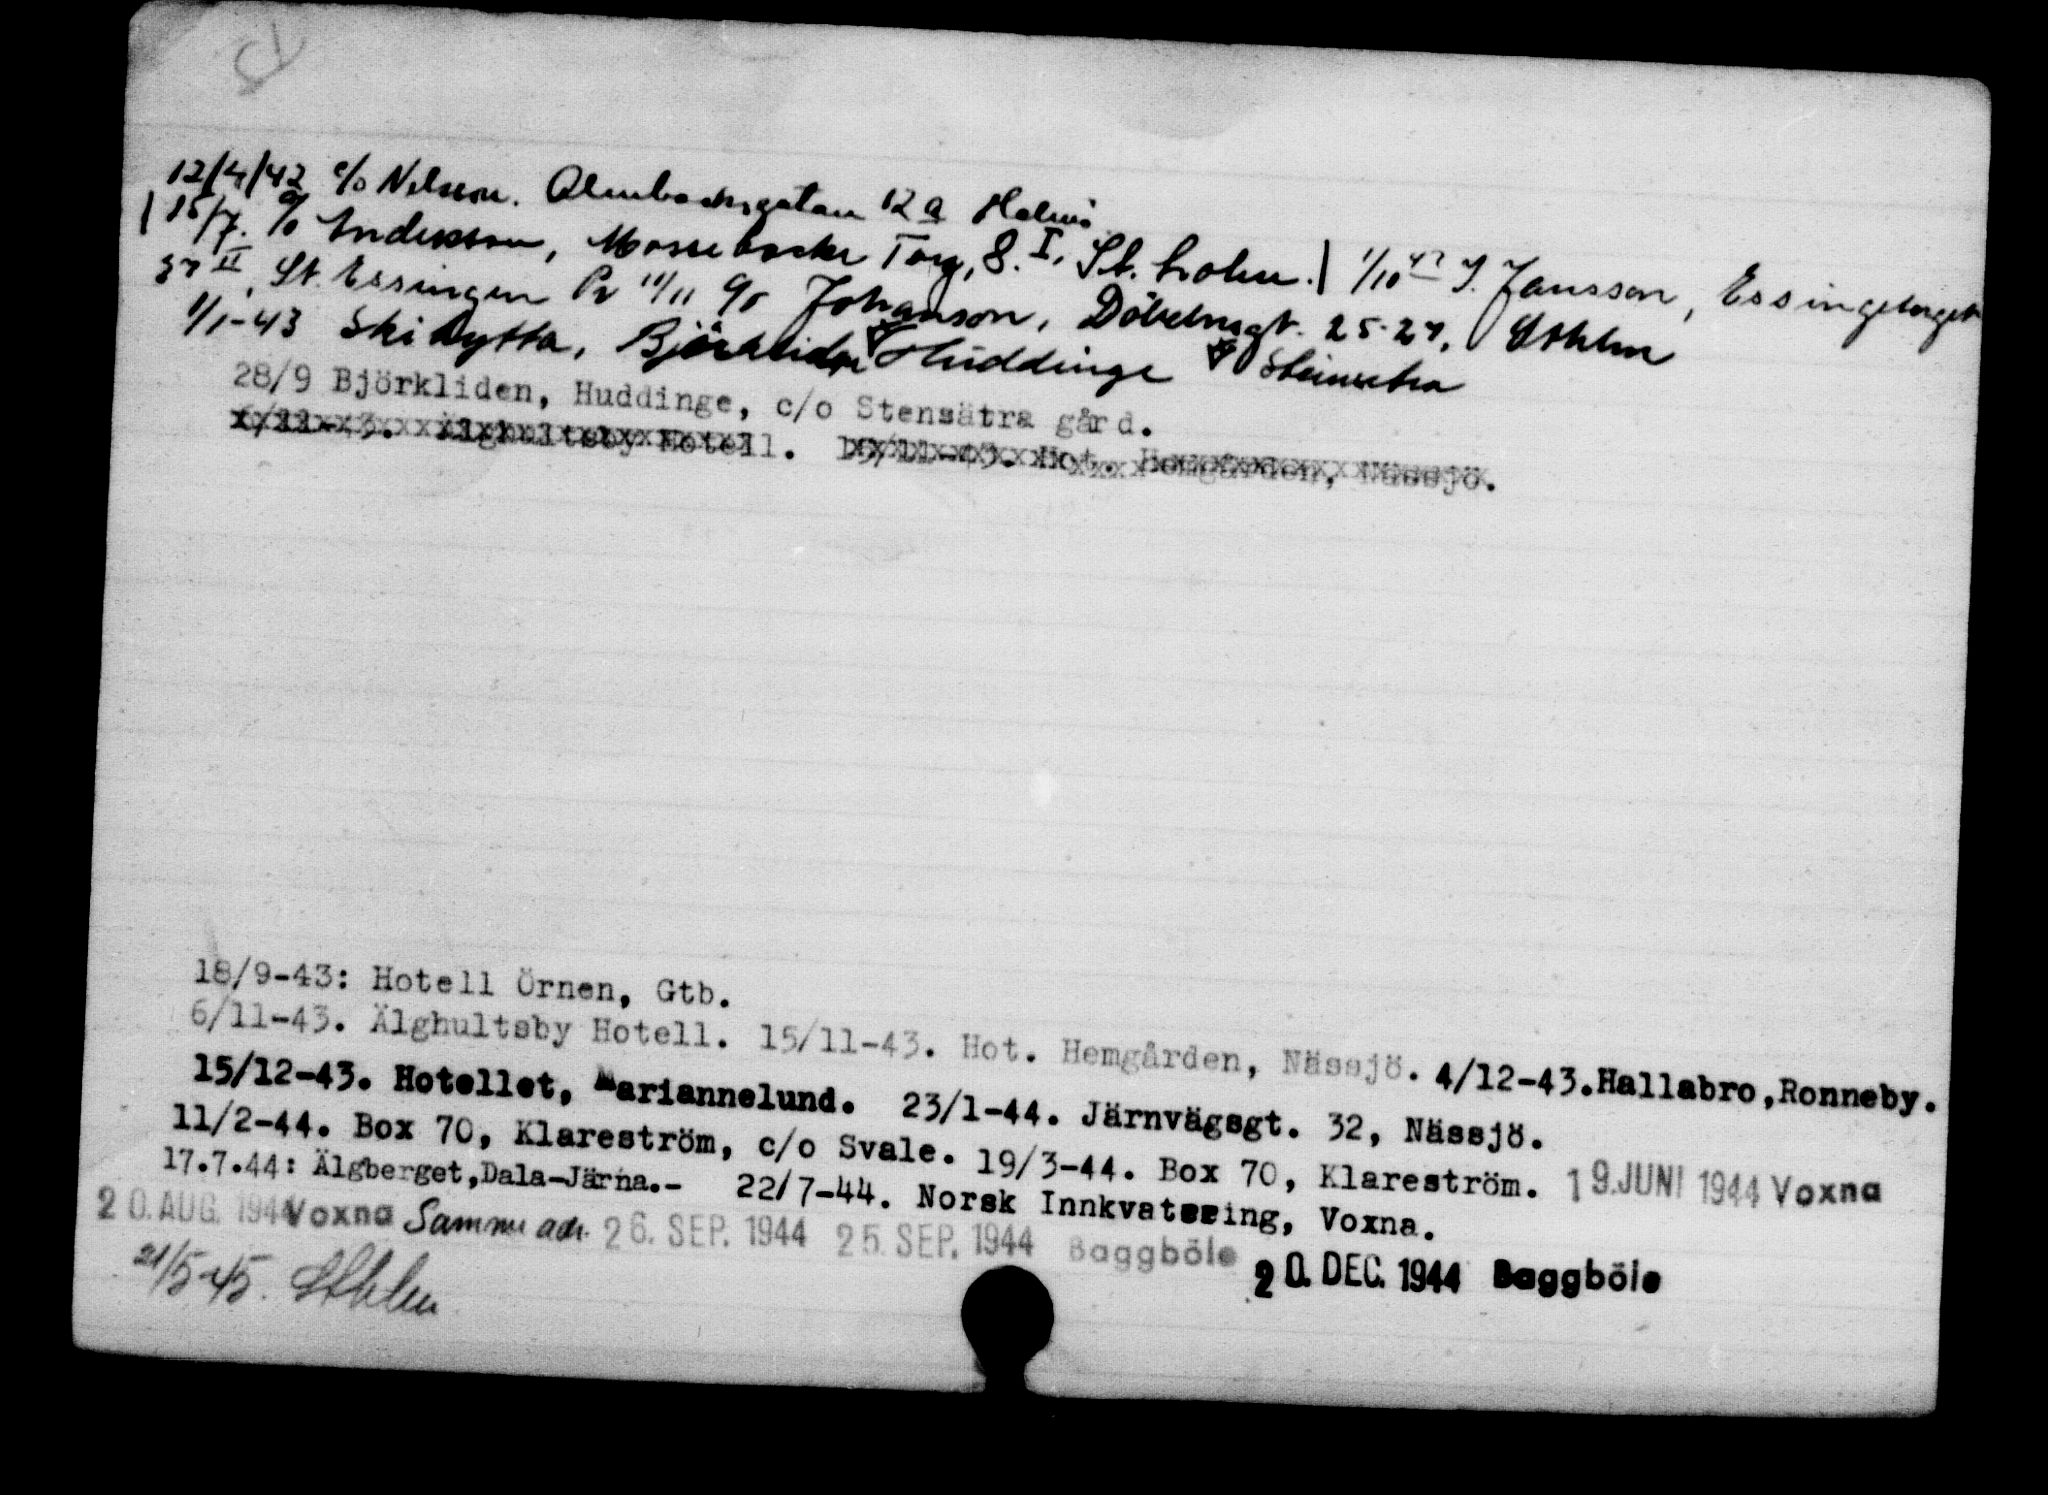 12/4/42 c/o Nilsson. Almbacksgatan 12 a Malmö
15/7. c/o Andersson, Mosse backe Torg, 8. I, St. holm. 1/10 42 J. Jansson, Essingetorget
37 II, St. Essingen Pr 11/11 c/o Johanson, Döbelnsgt. 25-27, Sthlm
1/1-43 Ski hytta, Björkliden Huddinge Steinsetra
28/9 Björkliden, Huddinge, c/o Stensätra gård.
6/11-43. Älghultsby Hotell. 15/11-43. Hot. Hemgården, Nässjö.
18/9-43: Hotell Örnen, Gtb.
6/11-43. Älghultsby Hotell. 15/11-43. Hot. Hemgården, Nässjö. 4/12-43.Hallabro,Ronneby.
15/12-43. Hotellet, Mariannelund. 23/1-44. Järnvägsgt. 32, Nässjö.
11/2-44. Box 70, Klareström, c/o Svale. 19/3-44. Box 70, Klareström. 19. JUNI 1944 Voxna
17.7.44: Älgberget,Dala-Järna.- 22/7-44. Norsk Innkvartering, Voxna.
20. AUG. 1944 Voxna Samme adr. 26. SEP. 1944 25. SEP. 1944 Baggböle 20. DEC. 1944 Baggböle
21/5-45. Sthlm